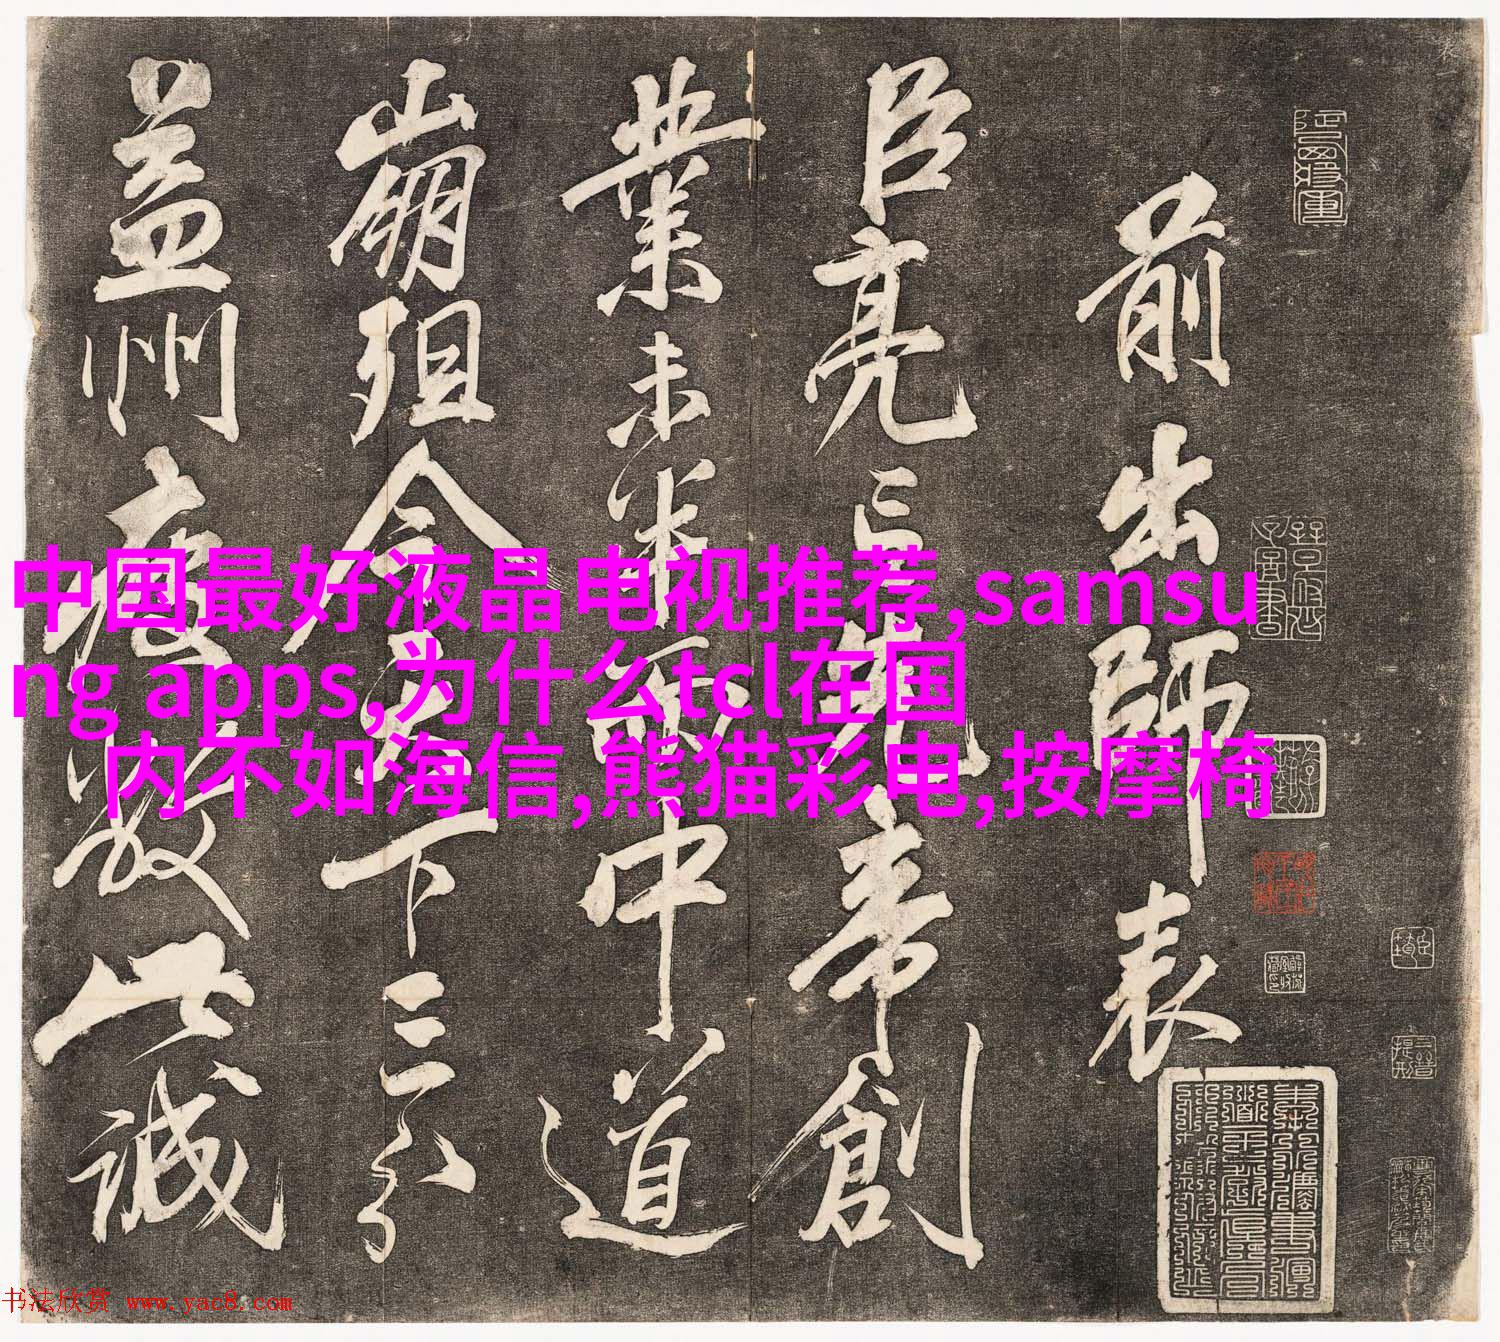 前出師表
臣亮言先帝創
業未半而中道
崩殂今天下三分
益州疲弊此誠
中国最好液晶电视推荐,samsu
ng apps,为什么tcl在国
内不如海信,熊猫彩电,按摩椅
书法欣赏 www.yac8.com